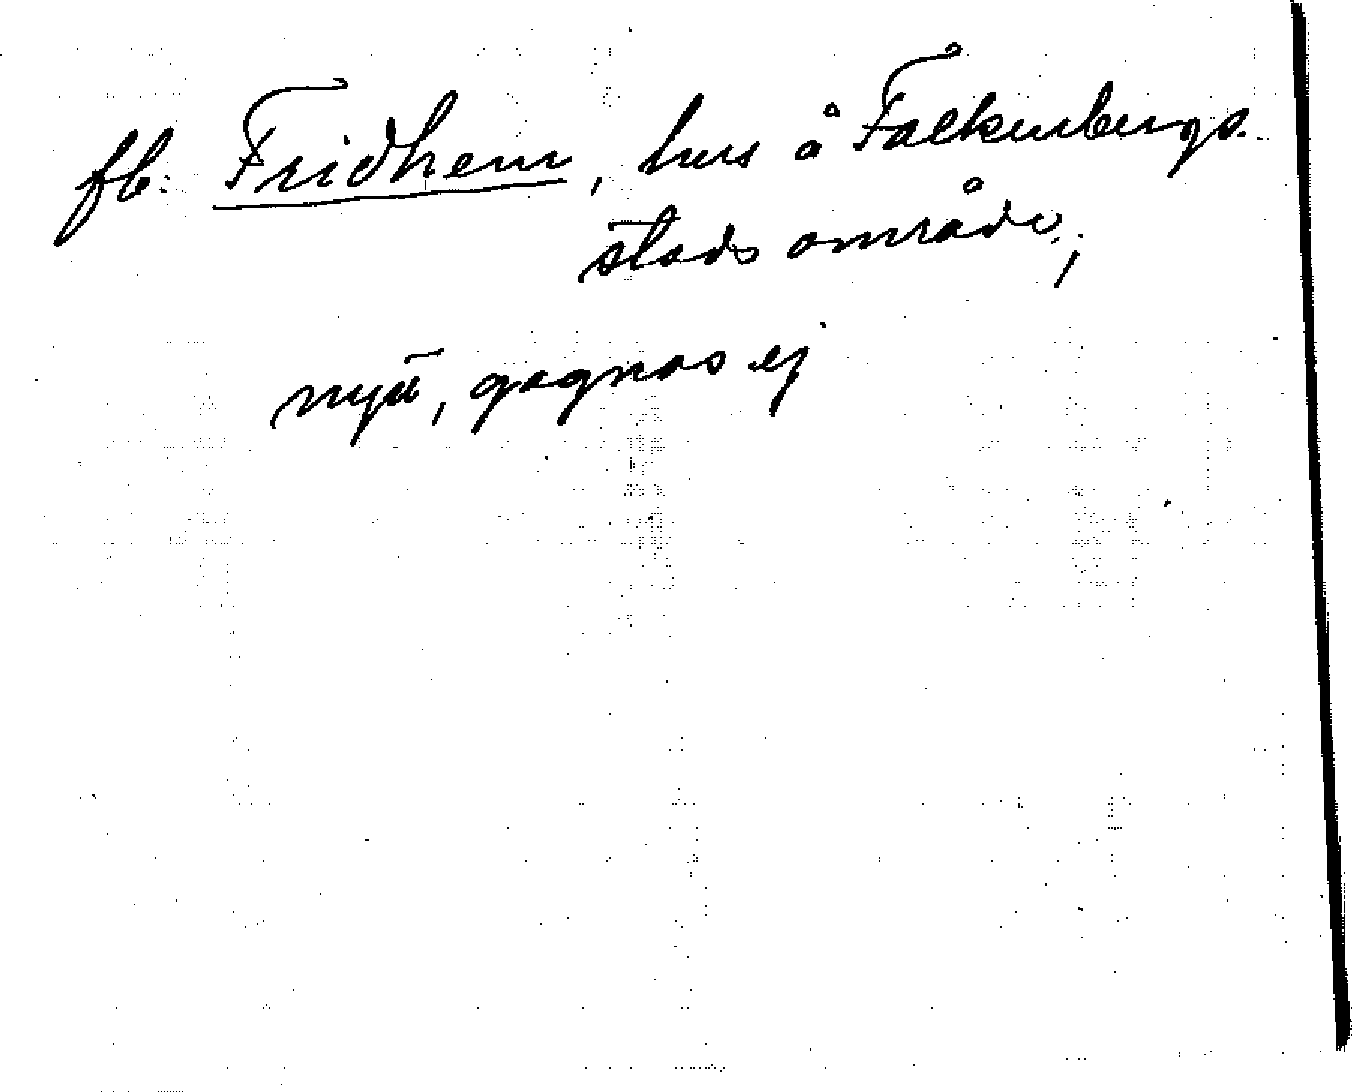 fb. Fridhem, hus å Falkenbergs
stads område,
nyä, gagnas ej